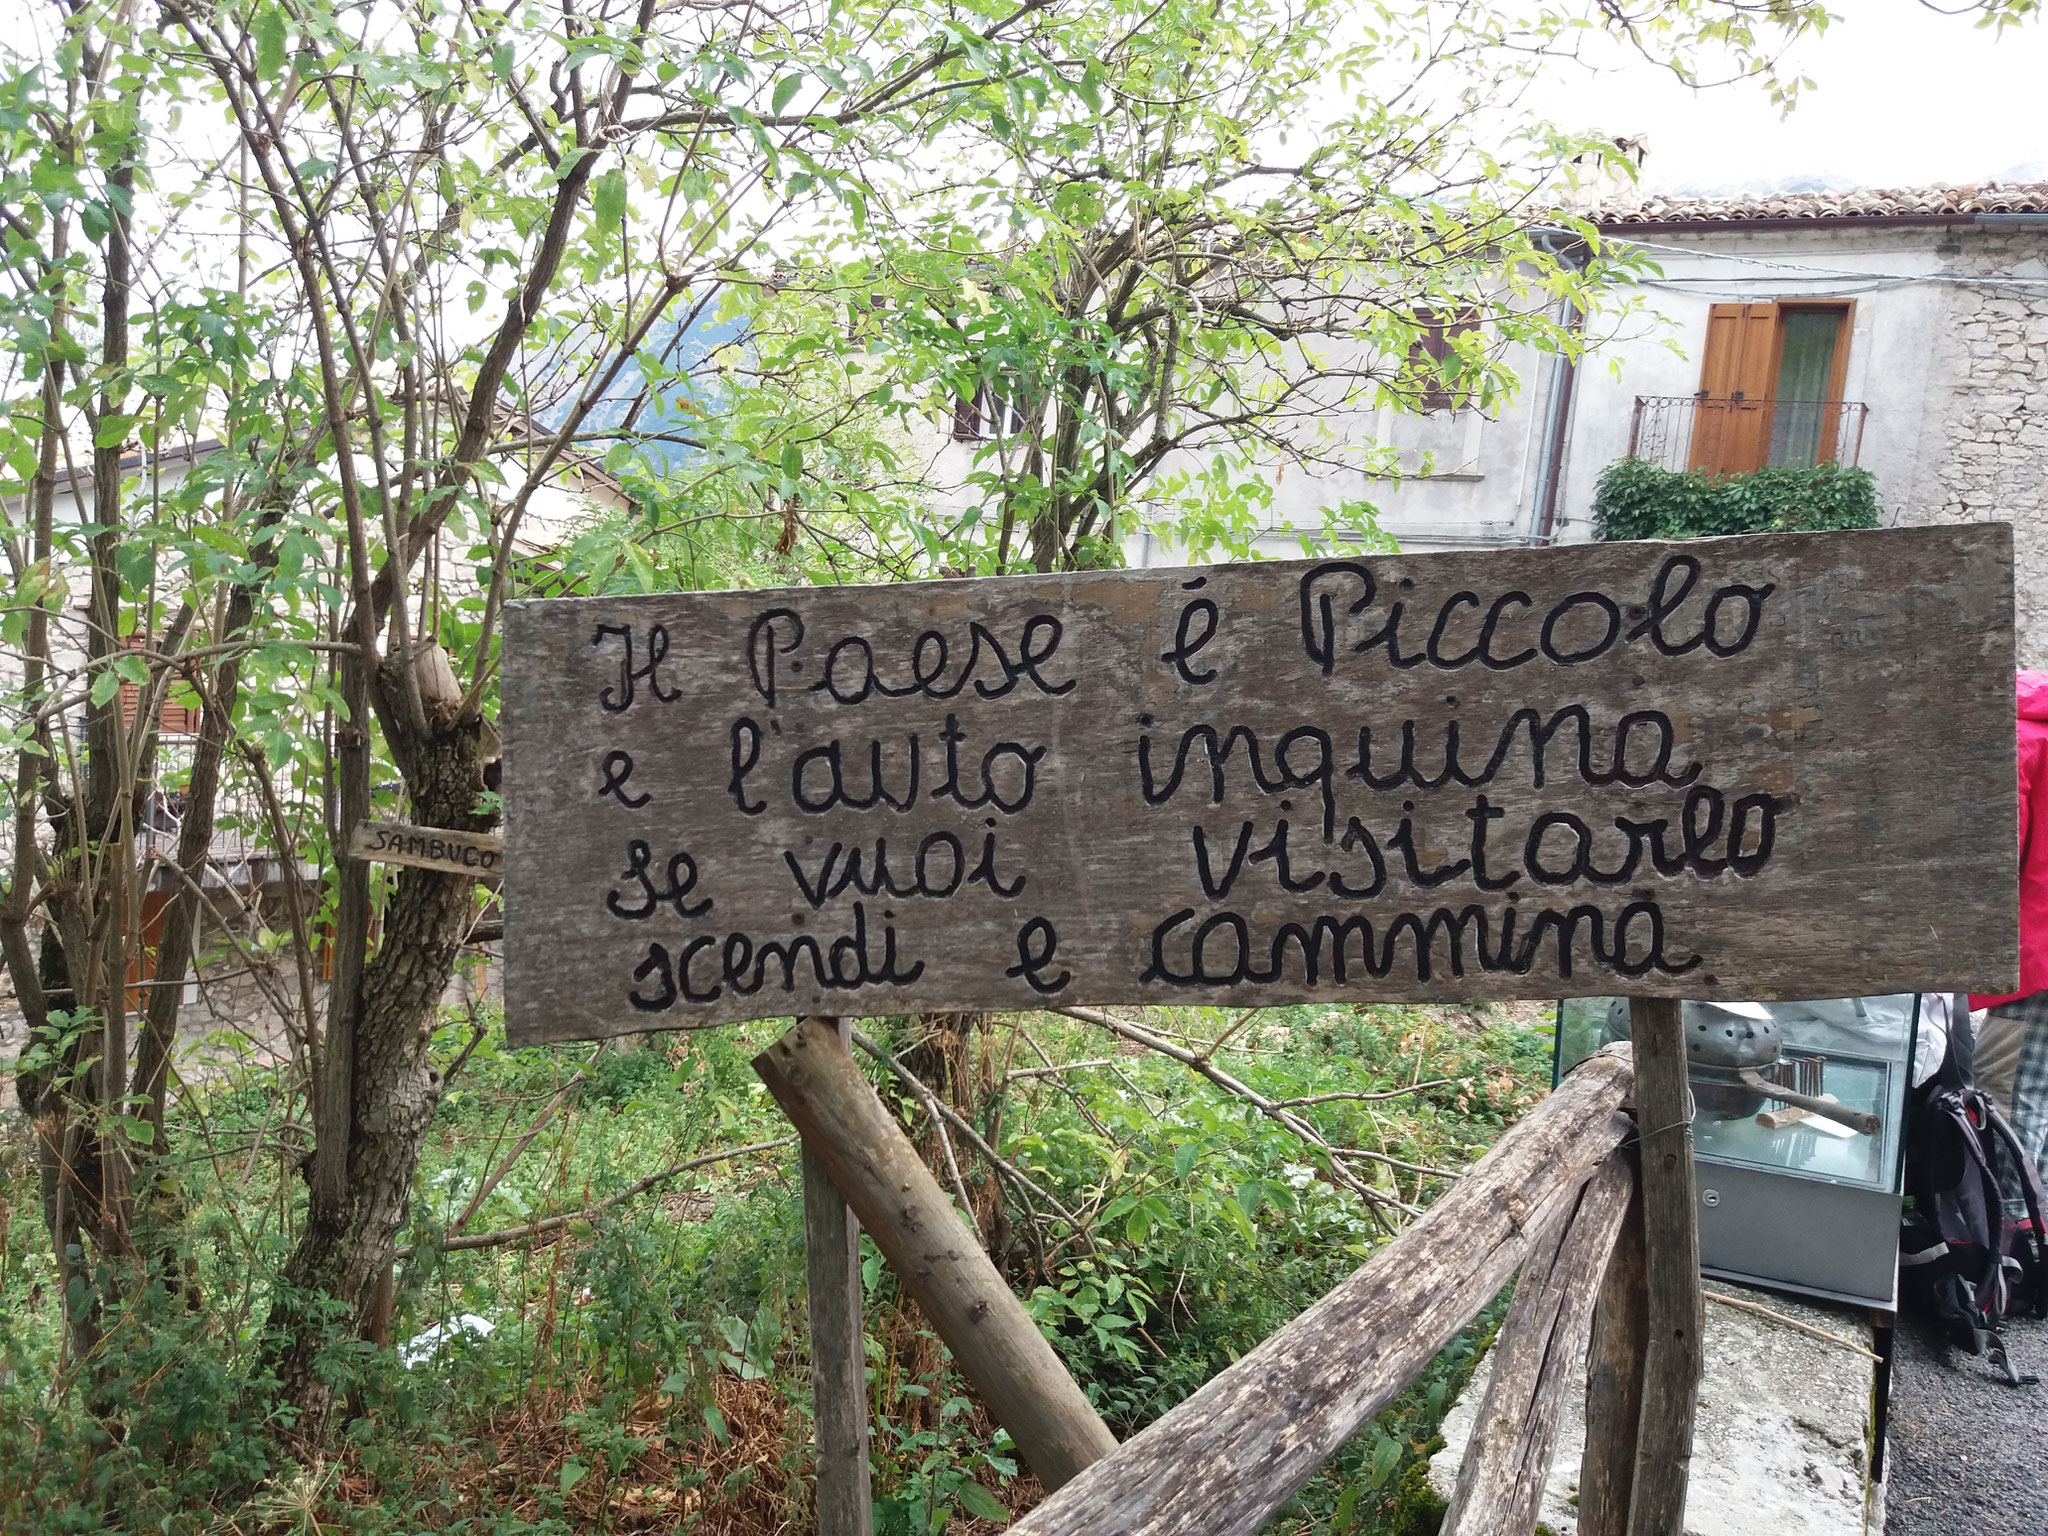 Il Paese é Piccolo
e l'auto inquina
se vuoi visitarlo
scendi e cammina
SAMBUCO